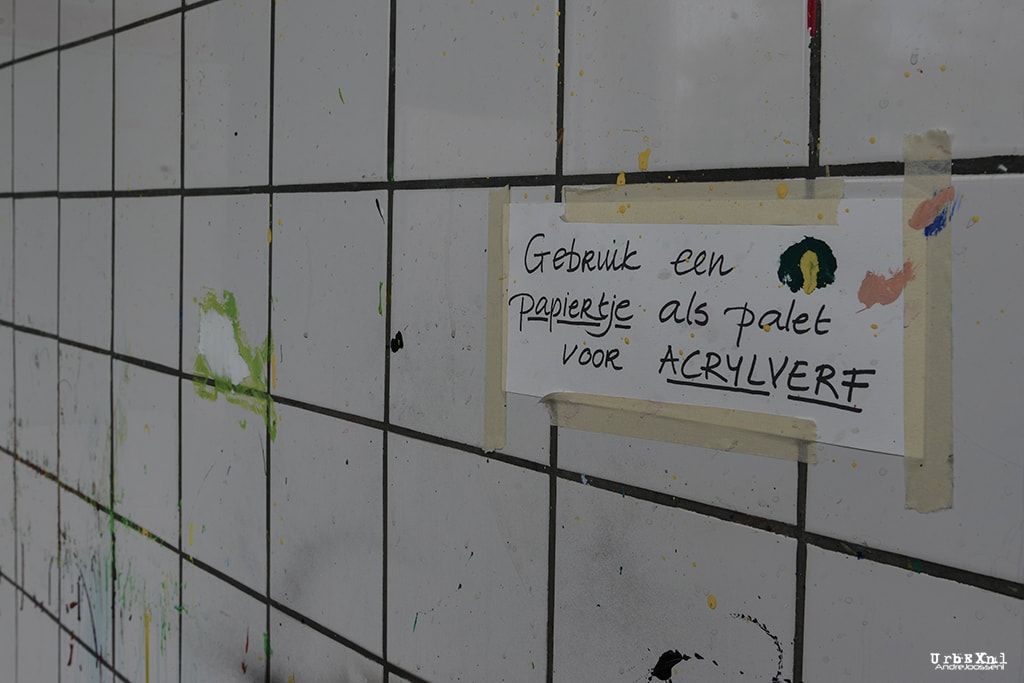 Gebruik een
papiertje als palet
voor ACRYLVERF
UrbEXnl
AndreJoosse.nl